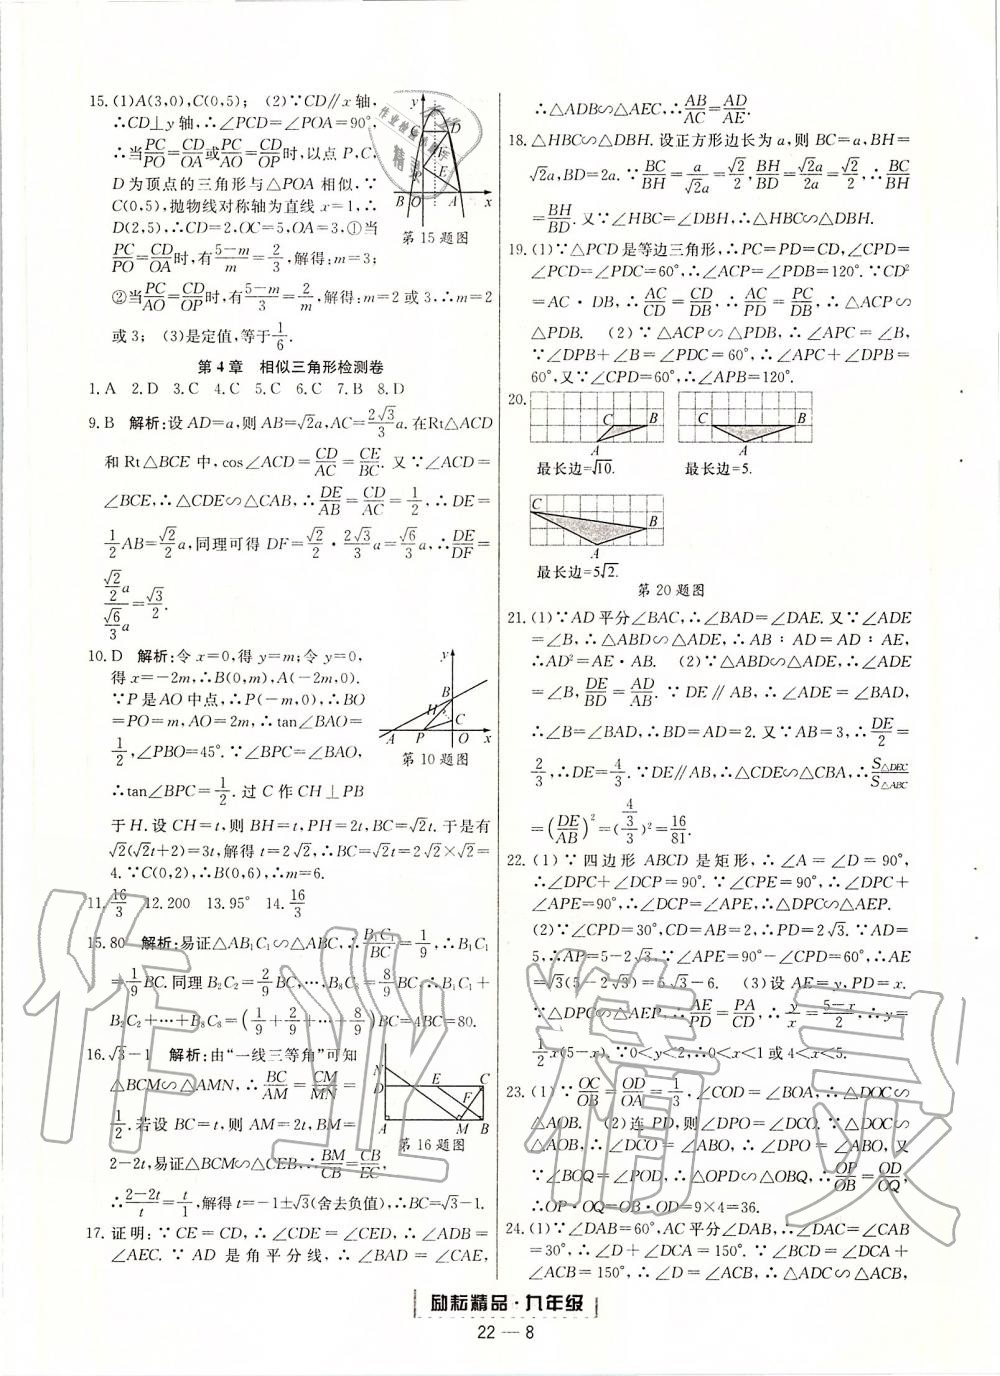 15. (1)A(3,0),C(0,5); (2)∵CD∥x 轴,
∴CD⊥y 轴,∴∠PCD=∠POA=90°,
∴当PC/PO=CD/OA或PC/OA=CD/OP时,以点 P,C,
D 为顶点的三角形与△POA 相似,∵
C(0,5),抛物线对称轴为直线 x=1,∴
D(2,5),∴CD=2,OC=5,OA=3,①当
PC/PO=CD/OA时,有(5-m)/m=2/3,解得:m=3;
②当PC/AO=CD/OP时,有(5-m)/3=2/m,解得:m=2 或 3.∴m=2
或 3; (3)是定值,等于1/6.
y
C
D
E
B
O
A
x
第 15 题图
第 4 章 相似三角形检测卷
1. A 2. D 3. C 4. C 5. C 6. C 7. B 8. D
9. B 解析:设 AD=a,则 AB=√2a,AC=2√3/3a. 在Rt△ACD
和 Rt△BCE 中,cos∠ACD=CD/AC=CE/BC. 又∵∠ACD=
∠BCE,∴△CDE∽△CAB,∴DE/AB=CD/AC=1/2,∴DE=
1/2AB=√2/2a,同理可得 DF=√2/2·2√3/3a=√6/3a,∴DE/DF=
(√2/2a)/(√6/3a)=√3/2.
10. D 解析:令 x=0,得 y=m;令 y=0,
得 x=-2m,∴B(0,m),A(-2m,0).
∵P 是 AO 中点,∴P(-m,0),∴BO
=PO=m,AO=2m,∴tan∠BAO=
1/2,∠PBO=45°.∵∠BPC=∠BAO,
∴tan∠BPC=1/2. 过 C 作 CH⊥PB
于 H. 设 CH=t,则 BH=t,PH=2t,BC=√2t. 于是有
√2(√2t+2)=3t,解得 t=2√2,∴BC=√2t=2√2×√2=
4.∵C(0,2),∴B(0,6),∴m=6.
y
B
H
C
A
P
O
x
第 10 题图
11. 16/3 12. 200 13. 95° 14. 16/3
15. 80 解析:易证△AB₁C₁∽△ABC,∴B₁C₁/BC=1/9,∴B₁C₁
=1/9BC. 同理 B₂C₂=2/9BC,…,B₈C₈=8/9BC,∴B₁C₁+
B₂C₂+…+B₈C₈=(1/9+2/9+…+8/9)BC=4BC=80.
16. √3-1 解析:由“一线三等角”可知
△BCM∽△AMN,∴BC/AM=CM/MN=
1/2. 若设 BC=t,则 AM=2t,BM=
2-2t,易证△BCM∽△CEB,∴BM/CB=CB/EC,
∴(2-2t)/t=t/1,解得 t=-1±√3(舍去负值),∴BC=√3-1.
N
D
E
C
F
A
M
B
第 16 题图
17. 证明:∵CE=CD,∴∠CDE=∠CED,∴∠ADB=
∠AEC.∵AD 是角平分线,∴∠BAD=∠CAE,
∴△ADB∽△AEC,∴AB/AC=AD/AE.
18. △HBC∽△DBH. 设正方形边长为 a,则 BC=a,BH=
√2a,BD=2a.∵BC/BH=a/√2a=√2/2,BH/BD=√2a/2a=√2/2,∴BC/BH
=BH/BD. 又∵∠HBC=∠DBH,∴△HBC∽△DBH.
19. (1)∵△PCD 是等边三角形,∴PC=PD=CD,∠CPD=
∠PCD=∠PDC=60°,∴∠ACP=∠PDB=120°.∵CD²
=AC·DB,∴AC/CD=CD/DB,∴AC/PD=PC/DB,∴△ACP∽
△PDB. (2)∵△ACP∽△PDB,∴∠APC=∠B,
∵∠DPB+∠B=∠PDC=60°,∴∠APC+∠DPB=
60°,又∵∠CPD=60°,∴∠APB=120°.
20.
C
B
A
最长边=√10.
C
B
A
最长边=5.
C
B
A
最长边=5√2.
第 20 题图
21. (1)∵AD 平分∠BAC,∴∠BAD=∠DAE. 又∵∠ADE
=∠B,∴△ABD∽△ADE,∴AB∶AD=AD∶AE,
∴AD²=AE·AB. (2)∵△ABD∽△ADE,∴∠ADE
=∠B,DE/BD=AD/AB.∵DE∥AB,∴∠ADE=∠BAD,
∴∠B=∠BAD,∴BD=AD=2. 又∵AB=3,∴DE/2=
2/3,∴DE=4/3.∵DE∥AB,∴△CDE∽△CBA,∴S△DEC/S△ABC
=(DE/AB)²=((4/3)/3)²=16/81.
22. (1)∵四边形 ABCD 是矩形,∴∠A=∠D=90°,
∴∠DPC+∠DCP=90°.∵∠CPE=90°,∴∠DPC+
∠APE=90°,∴∠DCP=∠APE,∴△DPC∽△AEP.
(2)∵∠CPD=30°,CD=AB=2,∴PD=2√3.∵AD=
5,∴AP=5-2√3.∵∠APE=90°-∠CPD=60°,∴AE
=√3(5-2√3)=5√3-6. (3)设 AE=y,PD=x.
∵△DPC∽△AEP,∴AE/PD=PA/CD,∴y/x=(5-x)/2,∴y=
1/2x(5-x).∵0<y<2,∴0<x<1 或 4<x<5.
23. (1)∵OC/OB=OD/OA=1/3,∠COD=∠BOA,∴△DOC∽
△AOB. (2)连 PD,则∠DPO=∠DCO.∵△DOC∽
△AOB,∴∠DCO=∠ABO,∴∠DPO=∠ABO,又
∵∠BOQ=∠POD,∴△OPD∽△OBQ,∴OP/OB=OD/OQ,
∴OP·OQ=OB·OD=9×4=36.
24. (1)∵∠DAB=60°,AC 平分∠DAB,∴∠DAC=∠CAB
=30°,∴∠D+∠DCA=150°.∵∠BCD=∠DCA+
∠ACB=150°,∴∠D=∠ACB,∴△ADC∽△ACB,
励耘精品·九年级
22 — 8
作业精灵